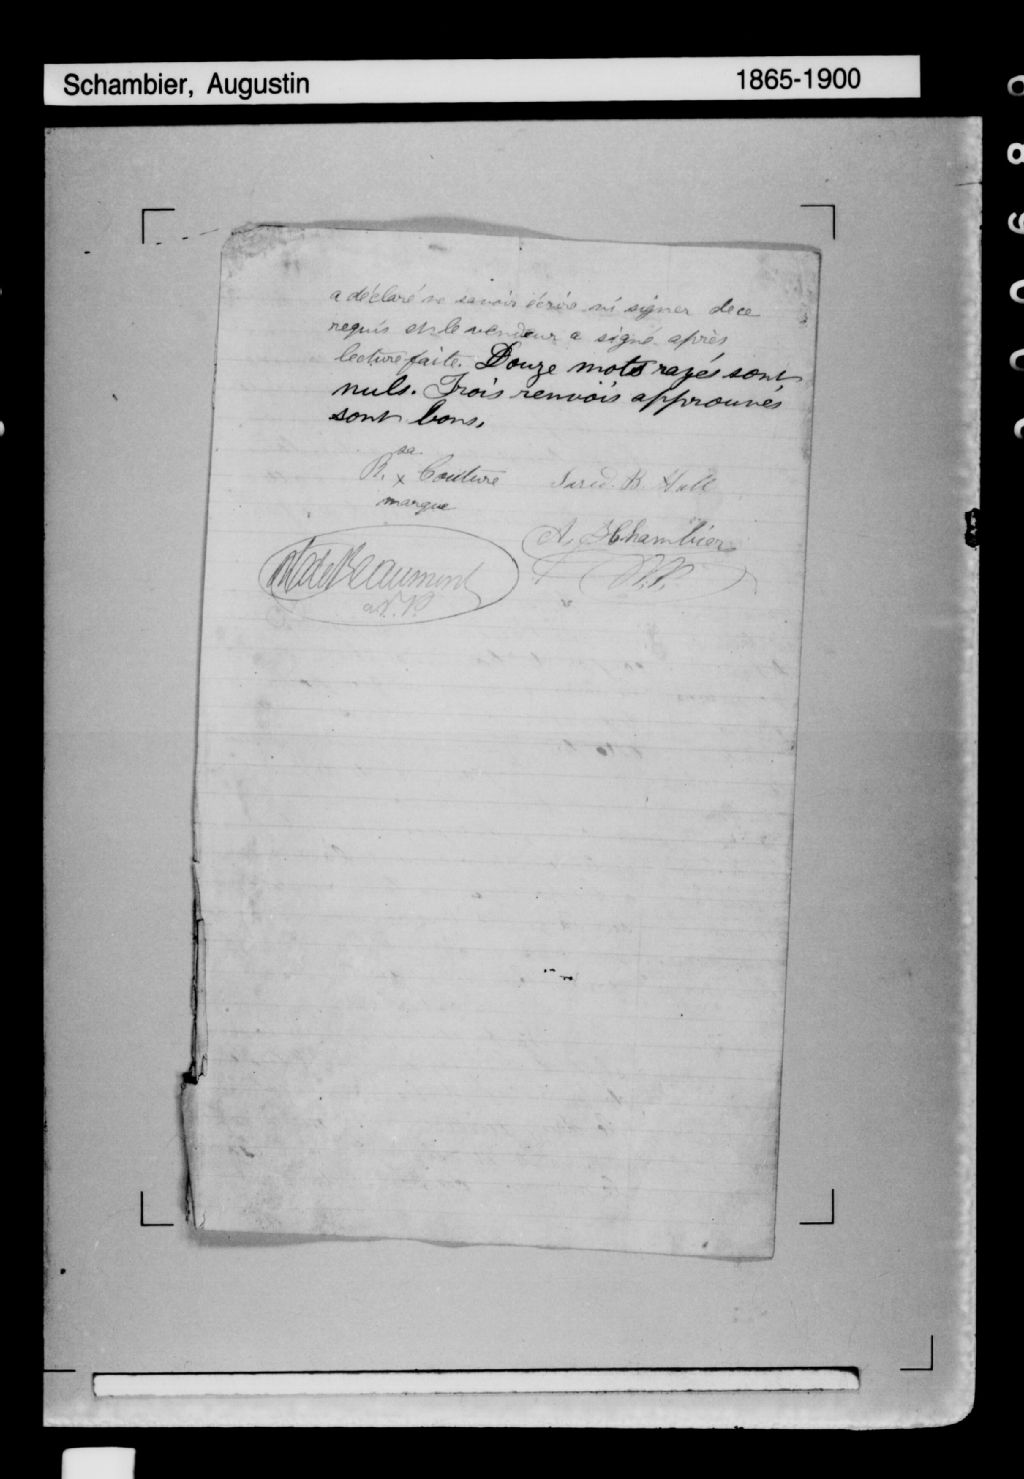 Schambier, Augustin 1865-1900
a déclaré ne savoir écrire ni signer de ce
requis et le vendeur a signé après
lecture faite. Douze mots rayés sont
nuls. Trois renvois approuvés
sont bons.
sa
R. x Couture B. Hall
marque
A. Schambier
de Beaumont N.P.
N.P.